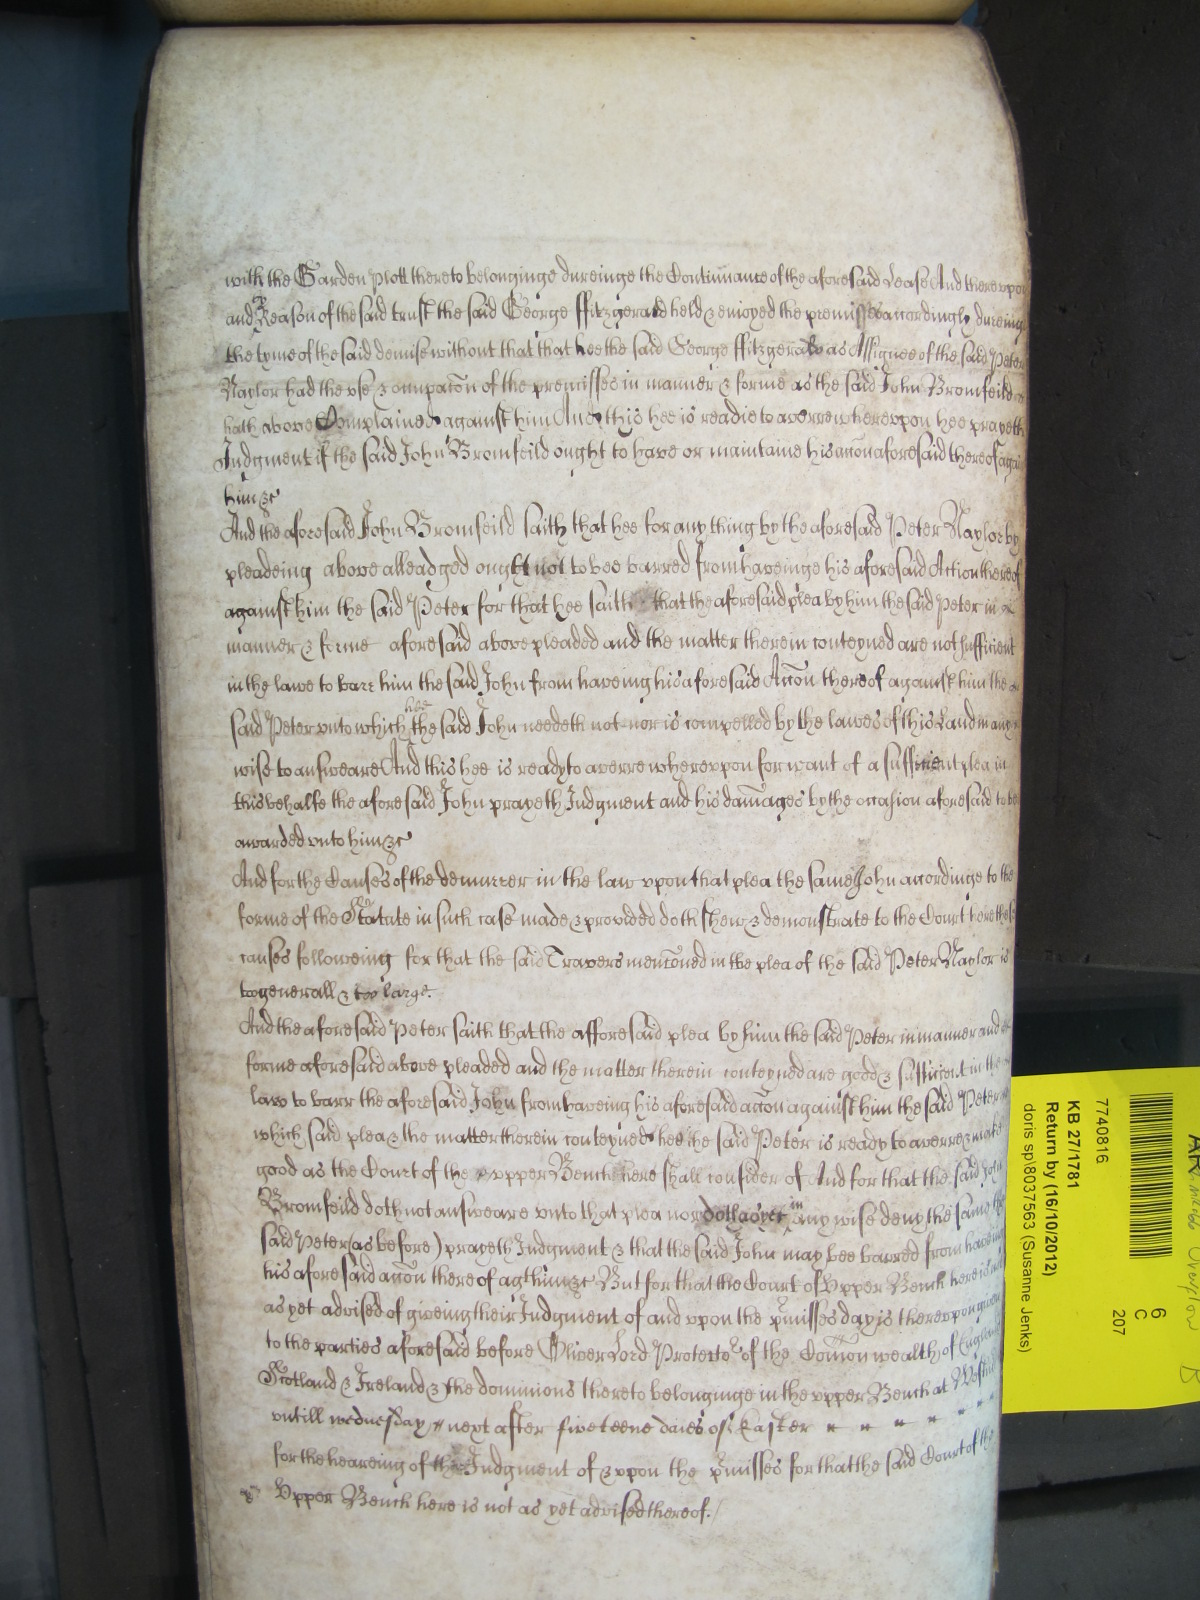 with the Garden Plott thereto belonginge dureinge the Continuance of the aforesaid Lease And therevpon
and Reason of the said trust the said George ffitzgerald held & enioyed the premisses accordingly dureing
the tyme of the said demise without that that hee the said George ffitzgerald as Assignee of the said Peter
Naylor had the vse & occupacon of the premisses in manner & forme as the said John Bromfeild
hath above Complained against him And this hee is readie to averre wherevpon hee prayeth
Judgment if the said John Bromfeild ought to have or maintaine his accon aforesaid thereof against
him &c
And the aforesaid John Bromfeild saith that hee for any thing by the aforesaid Peter Naylor by
pleadeing above alleadged ought not to bee barred from haveinge his aforesaid Action thereof
against him the said Peter for that hee saith that the aforesaid plea by him the said Peter in
manner & forme aforesaid above pleaded and the matter therein conteyned are not sufficient
in the lawe to barr him the said John from haveing his aforesaid Accon thereof against him the
said Peter vnto which hee the said John needeth not nor is compelled by the lawes of this Land in any
wise to answeare And this hee is ready to averre wherevpon for want of a sufficient plea in
this behalfe the aforesaid John prayeth Judgment and his damages by the occasion aforesaid to bee
awarded vnto him &c
And for the Causes of the demurrer in the law vpon that plea the same John accordinge to the
forme of the Statute in such case made & provided doth shew & demonstrate to the Court here these
causes followeing for that the said Travers menconed in the plea of the said Peter Naylor is
to generall & too large.
And the aforesaid Peter saith that the afforesaid plea by him the said Peter in manner and
forme aforesaid above pleaded and the matter therein conteyned are good & sufficient in the
law to barr the aforesaid John from haveing his aforesaid accon against him the said Peter
which said plea & the matter therein conteyned hee the said Peter is ready to averre & make
good as the Court of the vpper Bench here shall consider of And for that the said John
Bromfeild doth not answeare vnto that plea nor doth as yet in any wise deny the same the
said Peter (as before) prayeth Judgment & that the said John may bee barred from haveing
his aforesaid accon thereof agt him &c But for that the Court of Vpper Bench here is not
as yet advised of giveing their Judgment of and vpon the pmisses day is therevpon given
to the parties aforesaid before Oliver Lord Protector of the Comon wealth of England
Scotland & Ireland & the dominions thereto belonginge in the vpper Bench at Westmr
vntill wednesday next after fiveteene daies of Easter
for the heareing of the Judgment of & vpon the pmisses for that the said Court of the
Vpper Bench here is not as yet advised thereof./
7740816
KB 27/1781
Return by (16/10/2012)
doris sp\8037563 (Susanne Jenks)
6
C
207